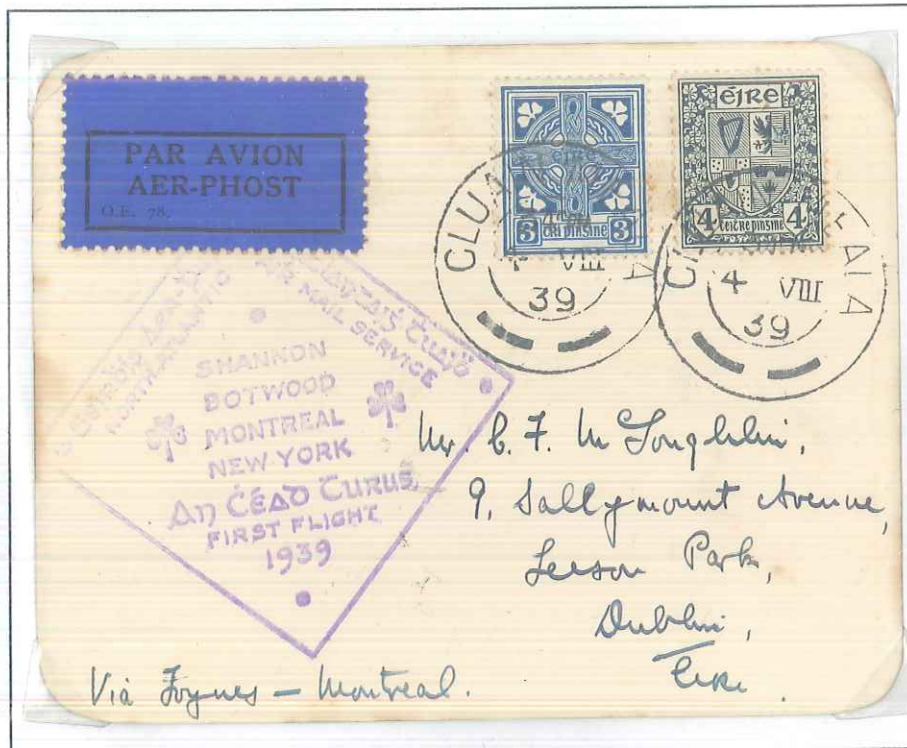 PAR AVION
AER-PHOST
O.E. 78.
éire
3 3
trí pinsine
éire
4 4
ceitre pinsine
CLUA
4 VIII
39
4 VIII
39
NORTH ATLANTIC
AIR MAIL SERVICE
SHANNON
BOTWOOD
MONTREAL
NEW YORK
An Ċéad Turus
FIRST FLIGHT
1939
Mr. C. F. McLoughlin,
9, Sallymount Avenue,
Leeson Park,
Dublin,
Eire.
Via Foynes – Montreal.